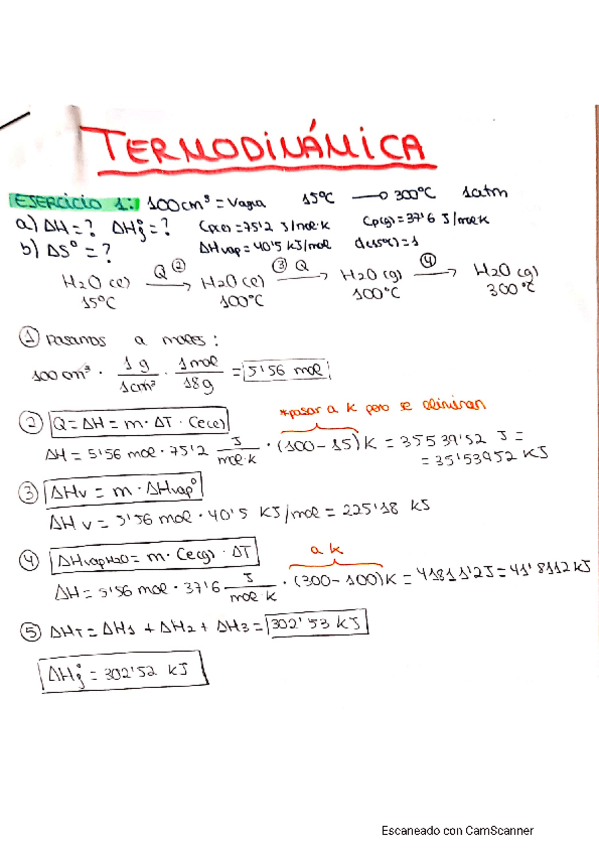 TERMODINÁMICA
EJERCICIO 1: 100cm³ = Vagua 15ºC → 300ºC 1atm
a) ΔH = ? ΔHj° = ? Cp(e) = 75'2 J/mol·k Cp(g) = 37'6 J/mol·k
b) ΔS° = ? ΔHvap = 40'5 kJ/mol d(15ºC) = 1
H2O (e) Q ② → H2O (e) ③ Q → H2O (g) ④ → H2O (g)
15ºC 100ºC 100ºC 300ºC
① Pasamos a moles:
100cm³ · 1g/1cm³ · 1mol/18g = 5'56 mol
② Q = ΔH = m · ΔT · Ce(e) *pasar a k pero se eliminan
ΔH = 5'56 mol · 75'2 J/mol·k · (100-15)K = 35539'52 J =
= 35'53952 KJ
③ ΔHv = m · ΔHvap°
ΔHv = 5'56 mol · 40'5 KJ/mol = 225'18 KJ
④ ΔHvapH2O = m · Ce(g) · ΔT a k
ΔH = 5'56 mol · 37'6 J/mol·k · (300-100)K = 41811'2J = 41'8112KJ
⑤ ΔHT = ΔH1 + ΔH2 + ΔH3 = 302'53 KJ
ΔHj° = 302'52 KJ
Escaneado con CamScanner